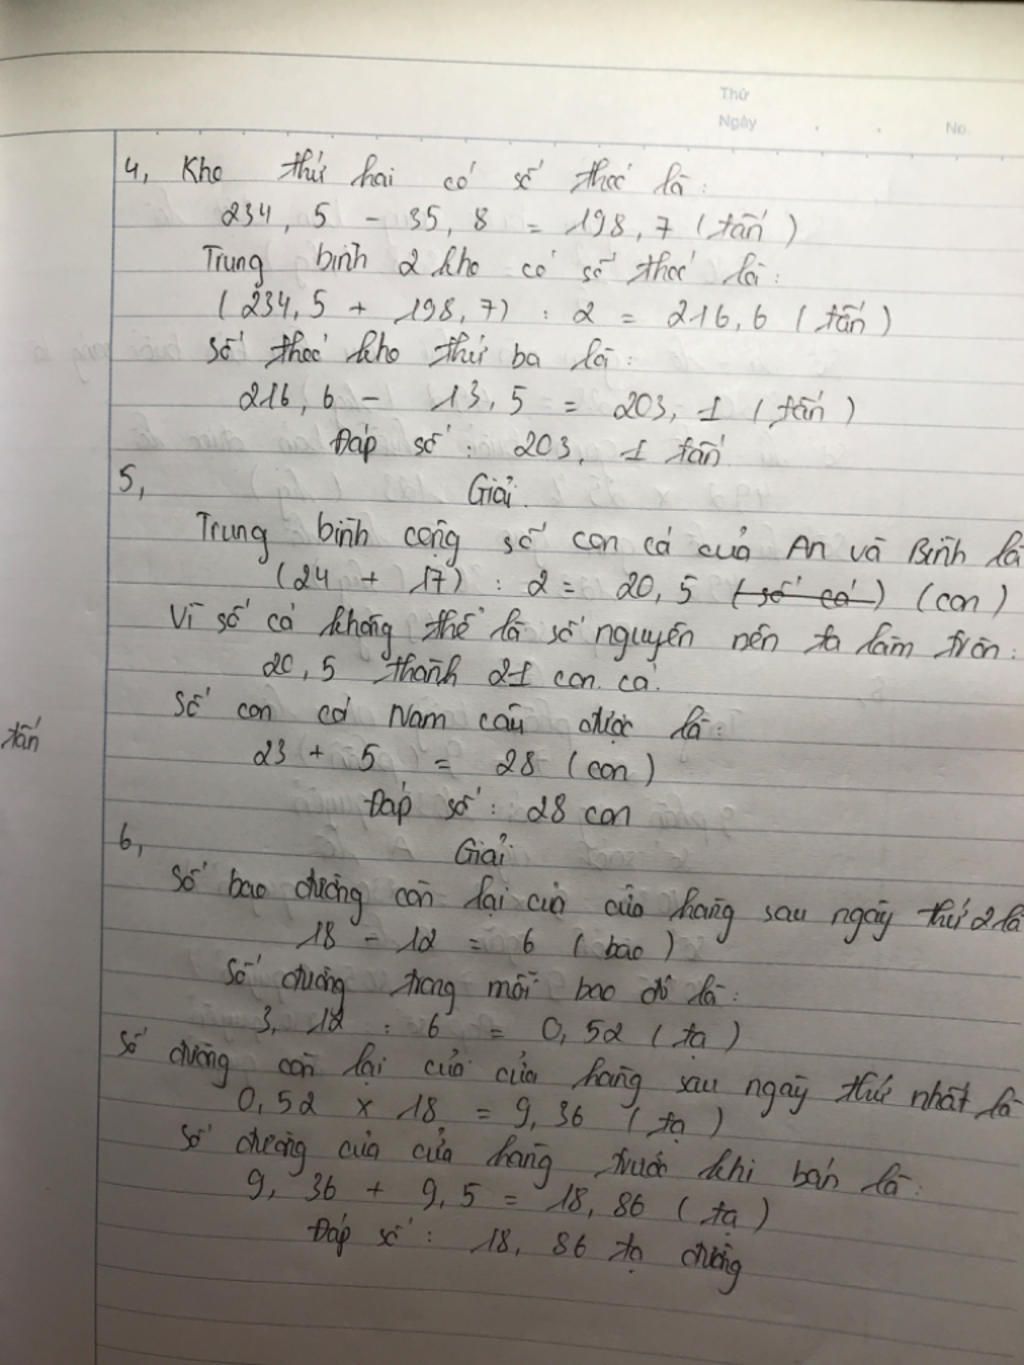 Thứ
Ngày . . No.
4, Kho thứ hai có số thóc là:
234, 5 - 35, 8 = 198, 7 (tấn)
Trung bình 2 kho có số thóc là:
(234, 5 + 198, 7) : 2 = 216, 6 (tấn)
Số thóc kho thứ ba là:
216, 6 - 13, 5 = 203, 1 (tấn)
Đáp số: 203, 1 tấn
5, Giải.
Trung bình cộng số con cá của An và Bình là
(24 + 17) : 2 = 20, 5 (số cá) (con)
Vì số cá không thể là số nguyên nên ta làm tròn:
20, 5 thành 21 con cá.
Số con cá Nam câu được là:
tấn
23 + 5 = 28 (con)
Đáp số: 28 con
6, Giải
Số bao đường còn lại của cửa hàng sau ngày thứ 2 là
18 - 12 = 6 (bao)
Số đường trong mỗi bao đó là:
3, 12 : 6 = 0, 52 (tạ)
Số đường còn lại của cửa hàng sau ngày thứ nhất là
0, 52 x 18 = 9, 36 (tạ)
Số đường của cửa hàng trước khi bán là:
9, 36 + 9, 5 = 18, 86 (tạ)
Đáp số: 18, 86 tạ đường